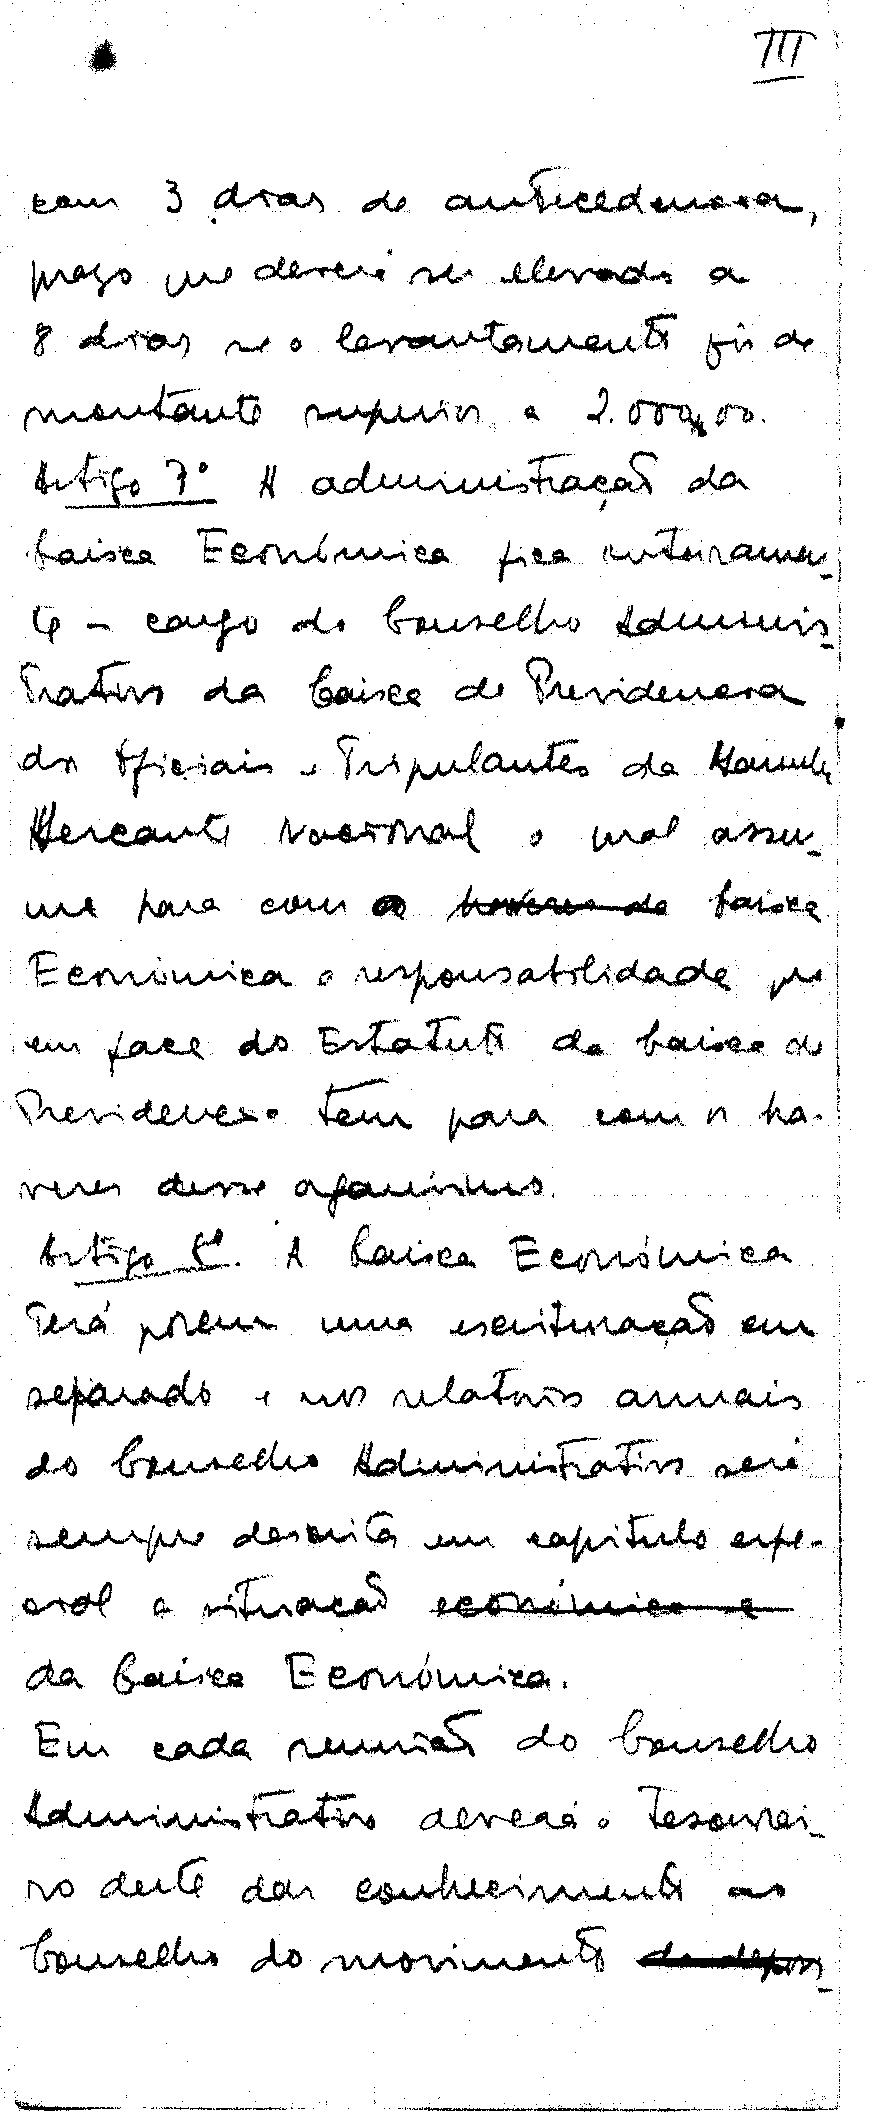 III
com 3 dias de antecedencia,
prazo que deverá ser elevado a
8 dias se o levantamento fôr de
montante superior a 2.000$00.
Artigo 7º A administração da
Caixa Económica fica inteiramen-
te a cargo do Conselho Adminis-
trativo da Caixa de Previdencia
dos Oficiais e Tripulantes da Marinha
Mercante Nacional o qual assu-
me para com a haveres da Caixa
Económica a responsabilidade que
em face do Estatuto da Caixa de
Previdencia tem para com os ha-
veres desse organismo.
Artigo 8º. A Caixa Económica
terá porem uma escrituração em
separado e nos relatorios anuais
do Conselho Administrativo será
sempre descrita em capitulo espe-
cial a situação económica e
da Caixa Económica.
Em cada reunião do Conselho
Administrativo deverá o Tesourei-
ro deste dar conhecimento ao
Conselho do movimento de deposi-